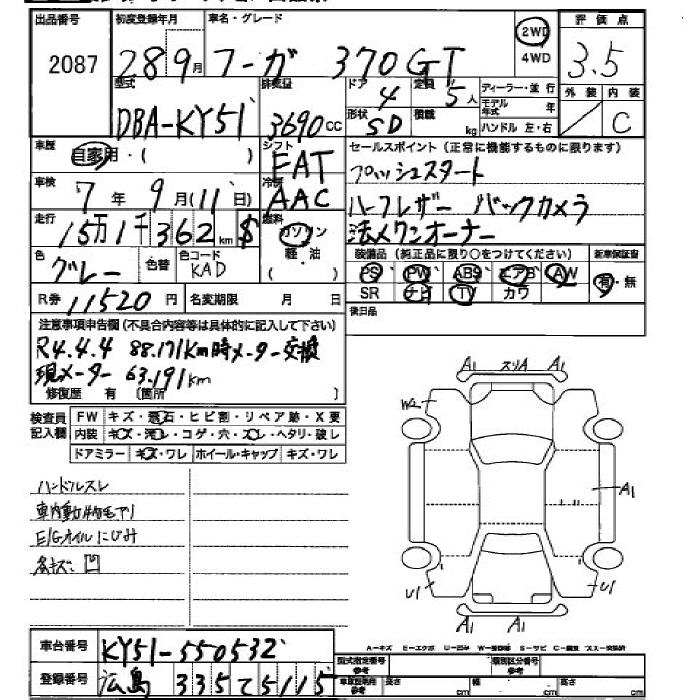 出品番号
2087
初度登録年月
28 9月
車名・グレード
フーガ 370GT
2WD
4WD
評価点
3.5
外装 内装
C
型式
DBA-KY51
排気量
3690cc
ドア
4
定員
5人
形状
SD
積載
kg
ディーラー・並行
モデル年式 年
ハンドル 左・右
車歴
自家用・( )
シフト
FAT
車検
7年 9月(11日)
冷房
AAC
走行
15万1千362km $
燃料
ガソリン
軽・油
( )
色
グレー
色替
色コード
KAD
R券 11520円
名変期限 月 日
セールスポイント(正常に機能するものに限ります)
プッシュスタート
ハーフレザー バックカメラ
法人ワンオーナー
装備品(純正品に限り○をつけてください)
新車保証書
PS PW ABS エアB AW
SR ナビ TV カワ
有・無
後日品
注意事項申告欄(不具合内容等は具体的に記入して下さい)
R4.4.4 88.171km時メーター交換
現メーター 63.191km
修復歴 有 〔箇所 〕
検査員記入欄
FW キズ・飛石・ヒビ割・リペア跡・X要
内装 キズ・汚レ・コゲ・穴・スレ・ヘタリ・破レ
ドアミラー キズ・ワレ ホイール・キャップ キズ・ワレ
ハンドルスレ
車内動物毛アリ
E/Gオイルにじみ
各キズ凹
A1 スリA A1
W2
A1
U1 U1
A1 A1
A-キズ E-エクボ U-凹み W-補修跡 S-サビ C-腐食 XX-交換済
車台番号
KY51-550532
登録番号
広島 335て5115
型式指定番号
参考
類別区分番号
参考
長さ cm
幅 cm
高さ cm